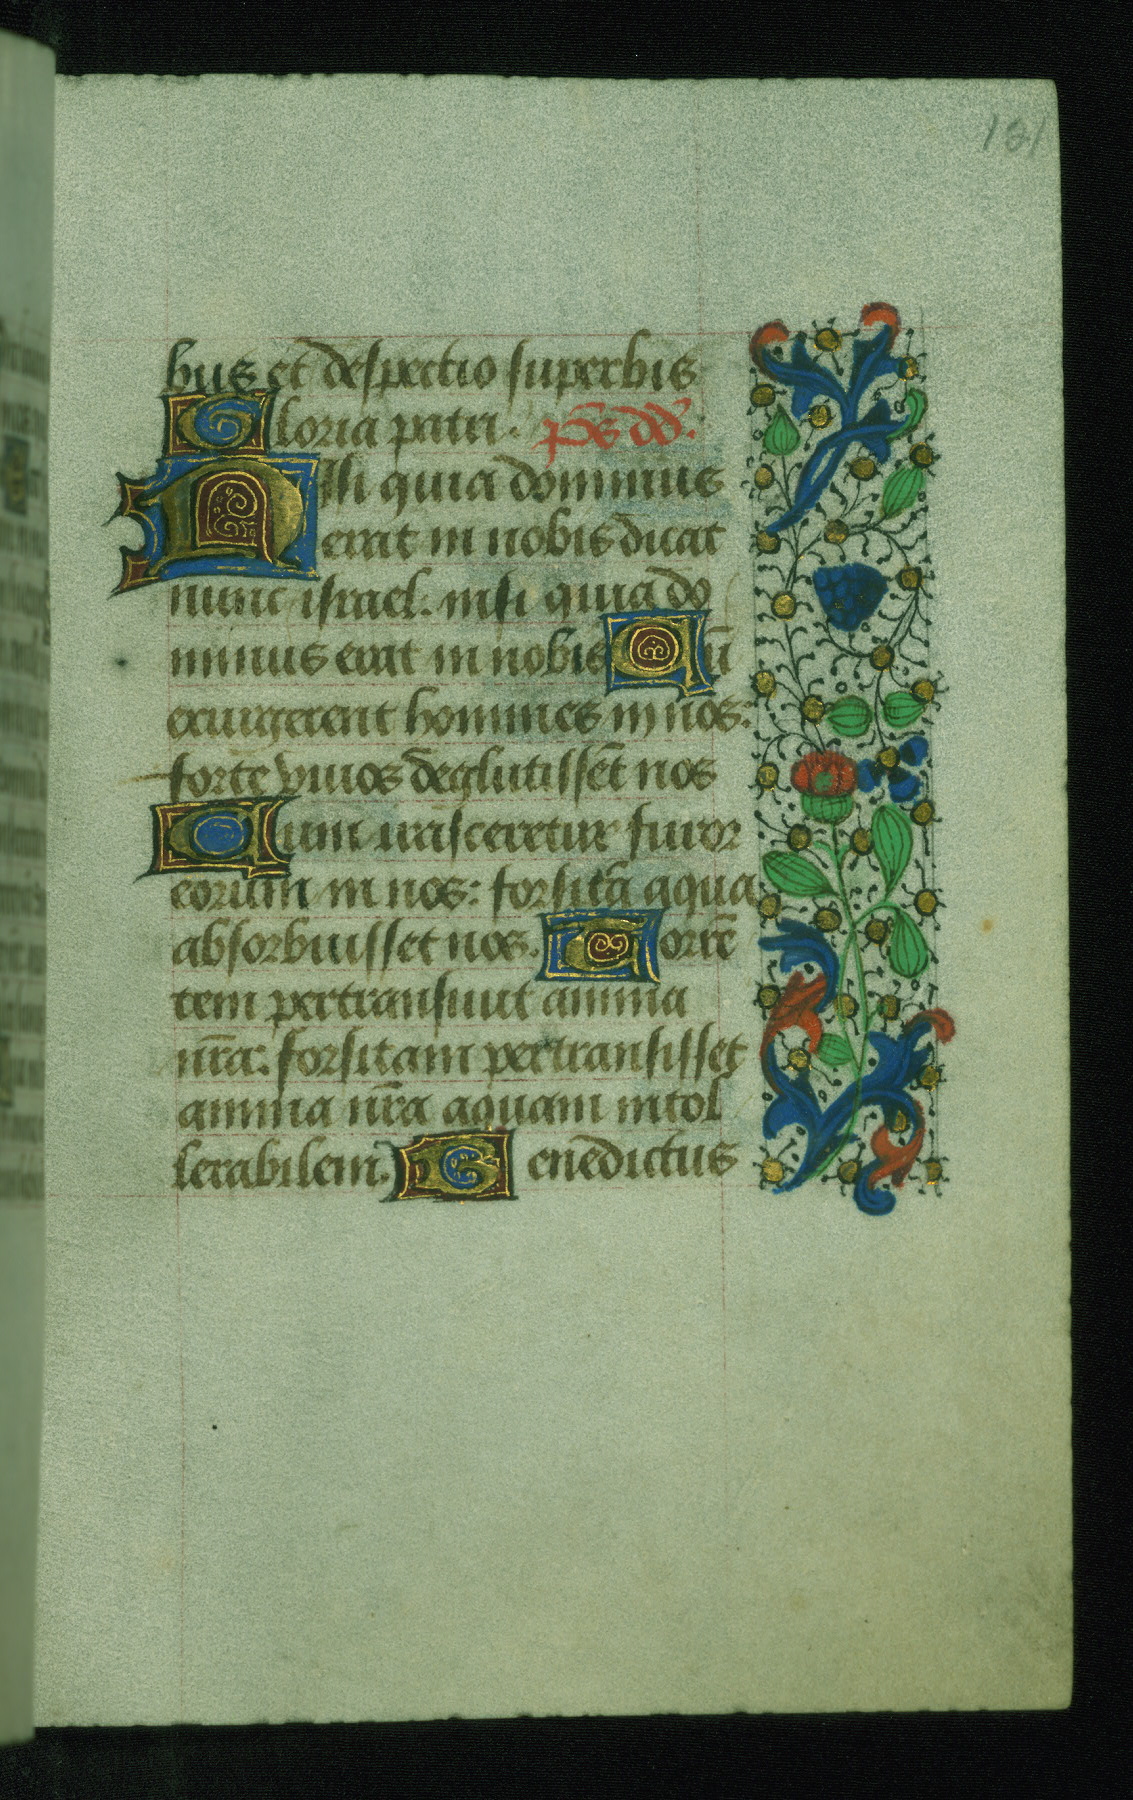 131
bus et despectio superbis
Gloria patri. ps̄ dd̄.
Nisi quia dominus
erat in nobis dicat
nunc israel: nisi quia do
minus erat in nobis Cū
exurgerent homines in nos:
forte viuos deglutissēt nos
Cum irasceretur furor
eorum in nos: forsitā aqua
absorbuisset nos. Torrē
tem pertransiuit anima
nr̄a: forsitam pertransisset
anima nr̄a aquam intol
lerabilem. Benedictus